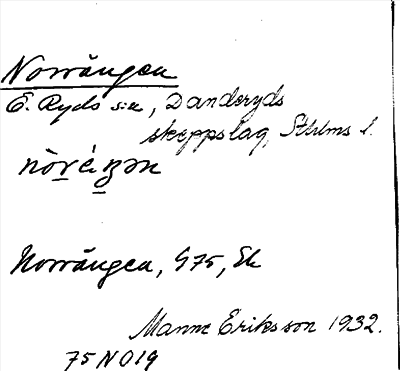 Norrängen
Ö. Ryds sn, Danderyds
skeppslag, Sthlms l.
Norrängen, G75, Ek
Manne Eriksson 1932.
75 NO19